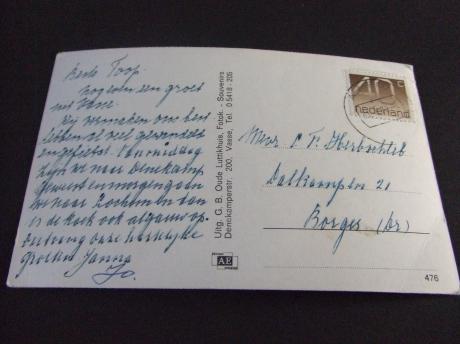 Beste Toop.
nog even een groet
uit Vasse.
Wij vermaken ons best
hebben al veel gewandeld
en gefietst. Vanmiddag
zijn we naar Denekamp
geweest en morgen gaan
we naar Lochem en dan
is de koek ook al gauw op.
ontvang onze hartelijke
Groeten Janna
Jo.
Uitg. G. B. Oude Luttikhuis, Fotok. - Souvenirs
Denekamperstr. 200, Vasse, Tel. 05418 - 205
AE
40c
nederland
Mevr
21
Borger (Dr)
476